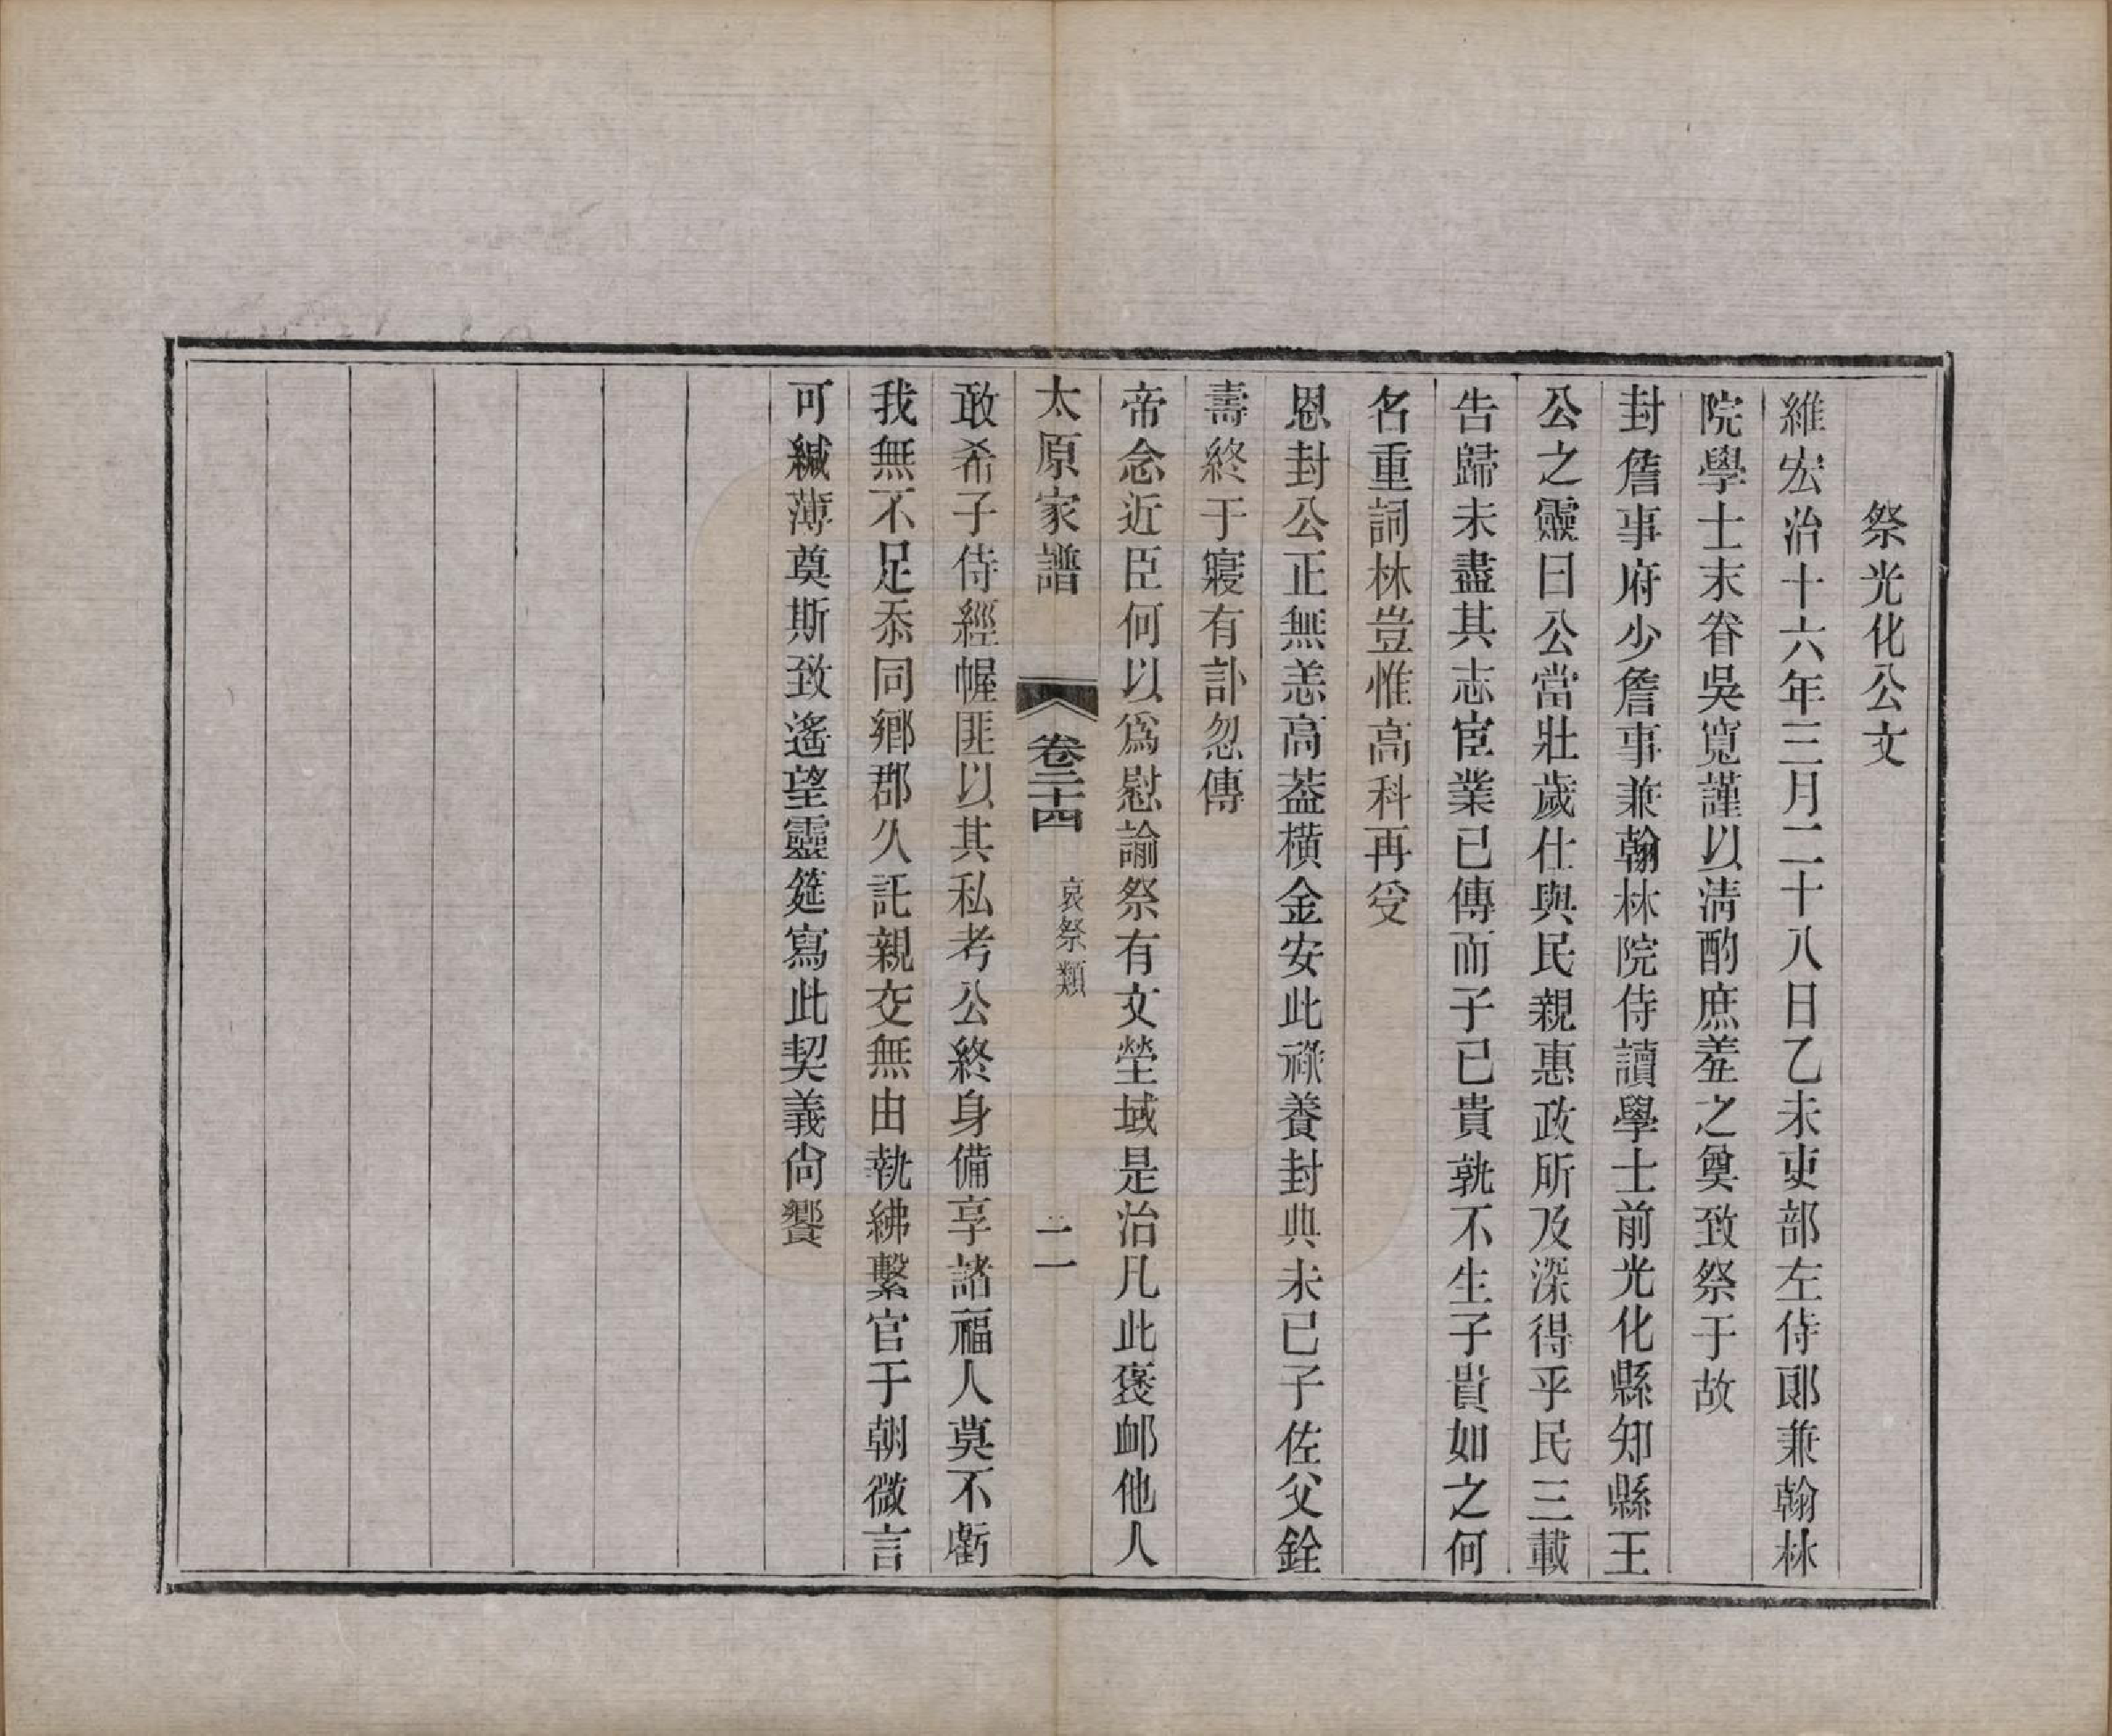 祭光化公文
維宏治十六年三月二十八日乙未吏部左侍郎兼翰林
院學士末眷吳寬謹以淸酌庶羞之奠致祭于故
封詹事府少詹事兼翰林院侍讀學士前光化縣知縣王
公之靈曰公當壯歲仕與民親惠政所及深得乎民三載
告歸未盡其志宦業已傳而子已貴孰不生子貴如之何
名重詞林豈惟高科再受
恩封公正無恙高葢橫金安此祿養封典未已子佐父銓
壽終于寢有訃忽傳
帝念近臣何以爲慰諭祭有文塋域是治凡此褒卹他人
太原家譜 卷二十四 哀祭類 二一
敢希子侍經幄匪以其私考公終身備享諸福人莫不虧
我無不足忝同鄉郡久託親交無由執紼繫官于朝微言
可緘薄奠斯致遙望靈筵寫此契義尙饗